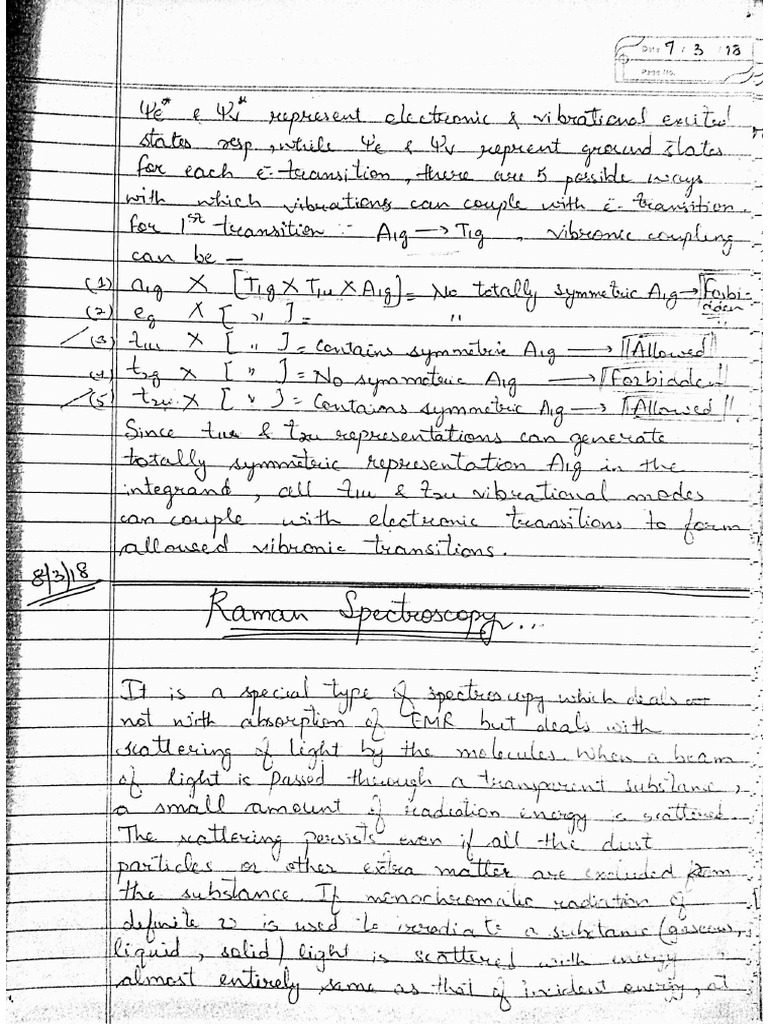 Date 7 / 3 / 18
Page No.
Ψe* & Ψv* represent electronic & vibrational excited
states resp., while Ψe & Ψv reprent ground states
for each e⁻-transition, there are 5 possible ways
with which vibrations can couple with e⁻-transition.
for 1st transition :- A1g → T1g , vibronic coupling
can be –
(1) a1g X [T1g X T1u X A1g] = No totally symmetric A1g → Forbi-
dden
(2) eg X [ " ] = "
(3) t1u X [ " ] = Contains symmetric A1g → Allowed
(4) t2g X [ " ] = No symmetric A1g → Forbidden
(5) t2u X [ " ] = Contains symmetric A1g → Allowed
Since t1u & t2u representations can generate
totally symmetric representation A1g in the
integrand, all t1u & t2u vibrational modes
can couple with electronic transitions to form
allowed vibronic transitions.
8/3/18
Raman Spectroscopy...
It is a special type of spectroscopy which deals
not with absorption of EMR but deals with
scattering of light by the molecules. When a beam
of light is passed through a transparent substanc,
a small amount of radiation energy is scattered.
The scattering persists even if all the dust
particles or other extra matter are excluded from
the substance. If monochromatic radiation of
definite ν is used to irradiate a substanc (gaseous,
liquid, solid) light is scattered with energy
almost entirely same as that of incident energy, at